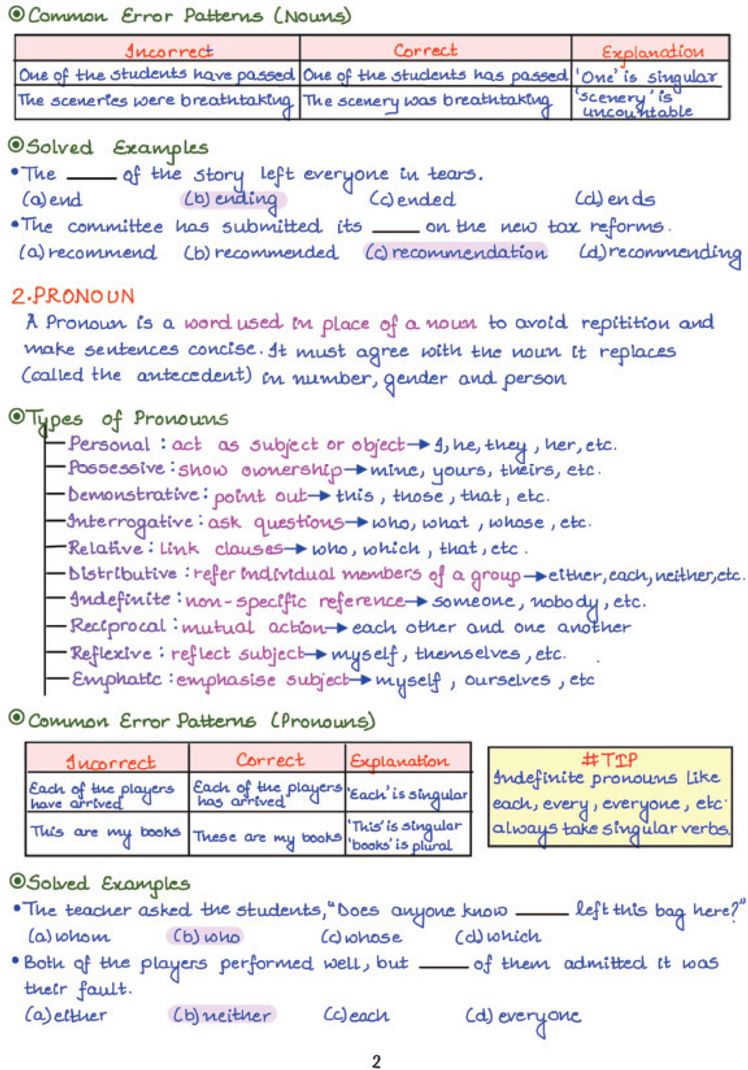 Common Error Patterns (Nouns)
Incorrect Correct Explanation
One of the students have passed One of the students has passed 'One' is singular
The sceneries were breathtaking The scenery was breathtaking 'scenery' is uncountable
Solved Examples
•The ____ of the story left everyone in tears.
(a) end (b) ending (c) ended (d) ends
•The committee has submitted its ____ on the new tax reforms.
(a) recommend (b) recommended (c) recommendation (d) recommending
2. PRONOUN
A Pronoun is a word used in place of a noun to avoid repitition and
make sentences concise. It must agree with the noun it replaces
(called the antecedent) in number, gender and person
Types of Pronouns
Personal : act as subject or object→I, he, they, her, etc.
Possessive : show ownership→mine, yours, theirs, etc.
Demonstrative : point out→this, those, that, etc.
Interrogative : ask questions→who, what, whose, etc.
Relative : link clauses→who, which, that, etc.
Distributive : refer individual members of a group→either, each, neither, etc.
Indefinite : non-specific reference→someone, nobody, etc.
Reciprocal : mutual action→each other and one another
Reflexive : reflect subject→myself, themselves, etc.
Emphatic : emphasise subject→myself, ourselves, etc
Common Error Patterns (Pronouns)
Incorrect Correct Explanation
Each of the players have arrived Each of the players has arrived 'Each' is singular
This are my books These are my books 'This' is singular 'books' is plural
#TIP
Indefinite pronouns like
each, every, everyone, etc.
always take singular verbs.
Solved Examples
•The teacher asked the students, "Does anyone know ____ left this bag here?"
(a) whom (b) who (c) whose (d) which
•Both of the players performed well, but ____ of them admitted it was
their fault.
(a) either (b) neither (c) each (d) everyone
2